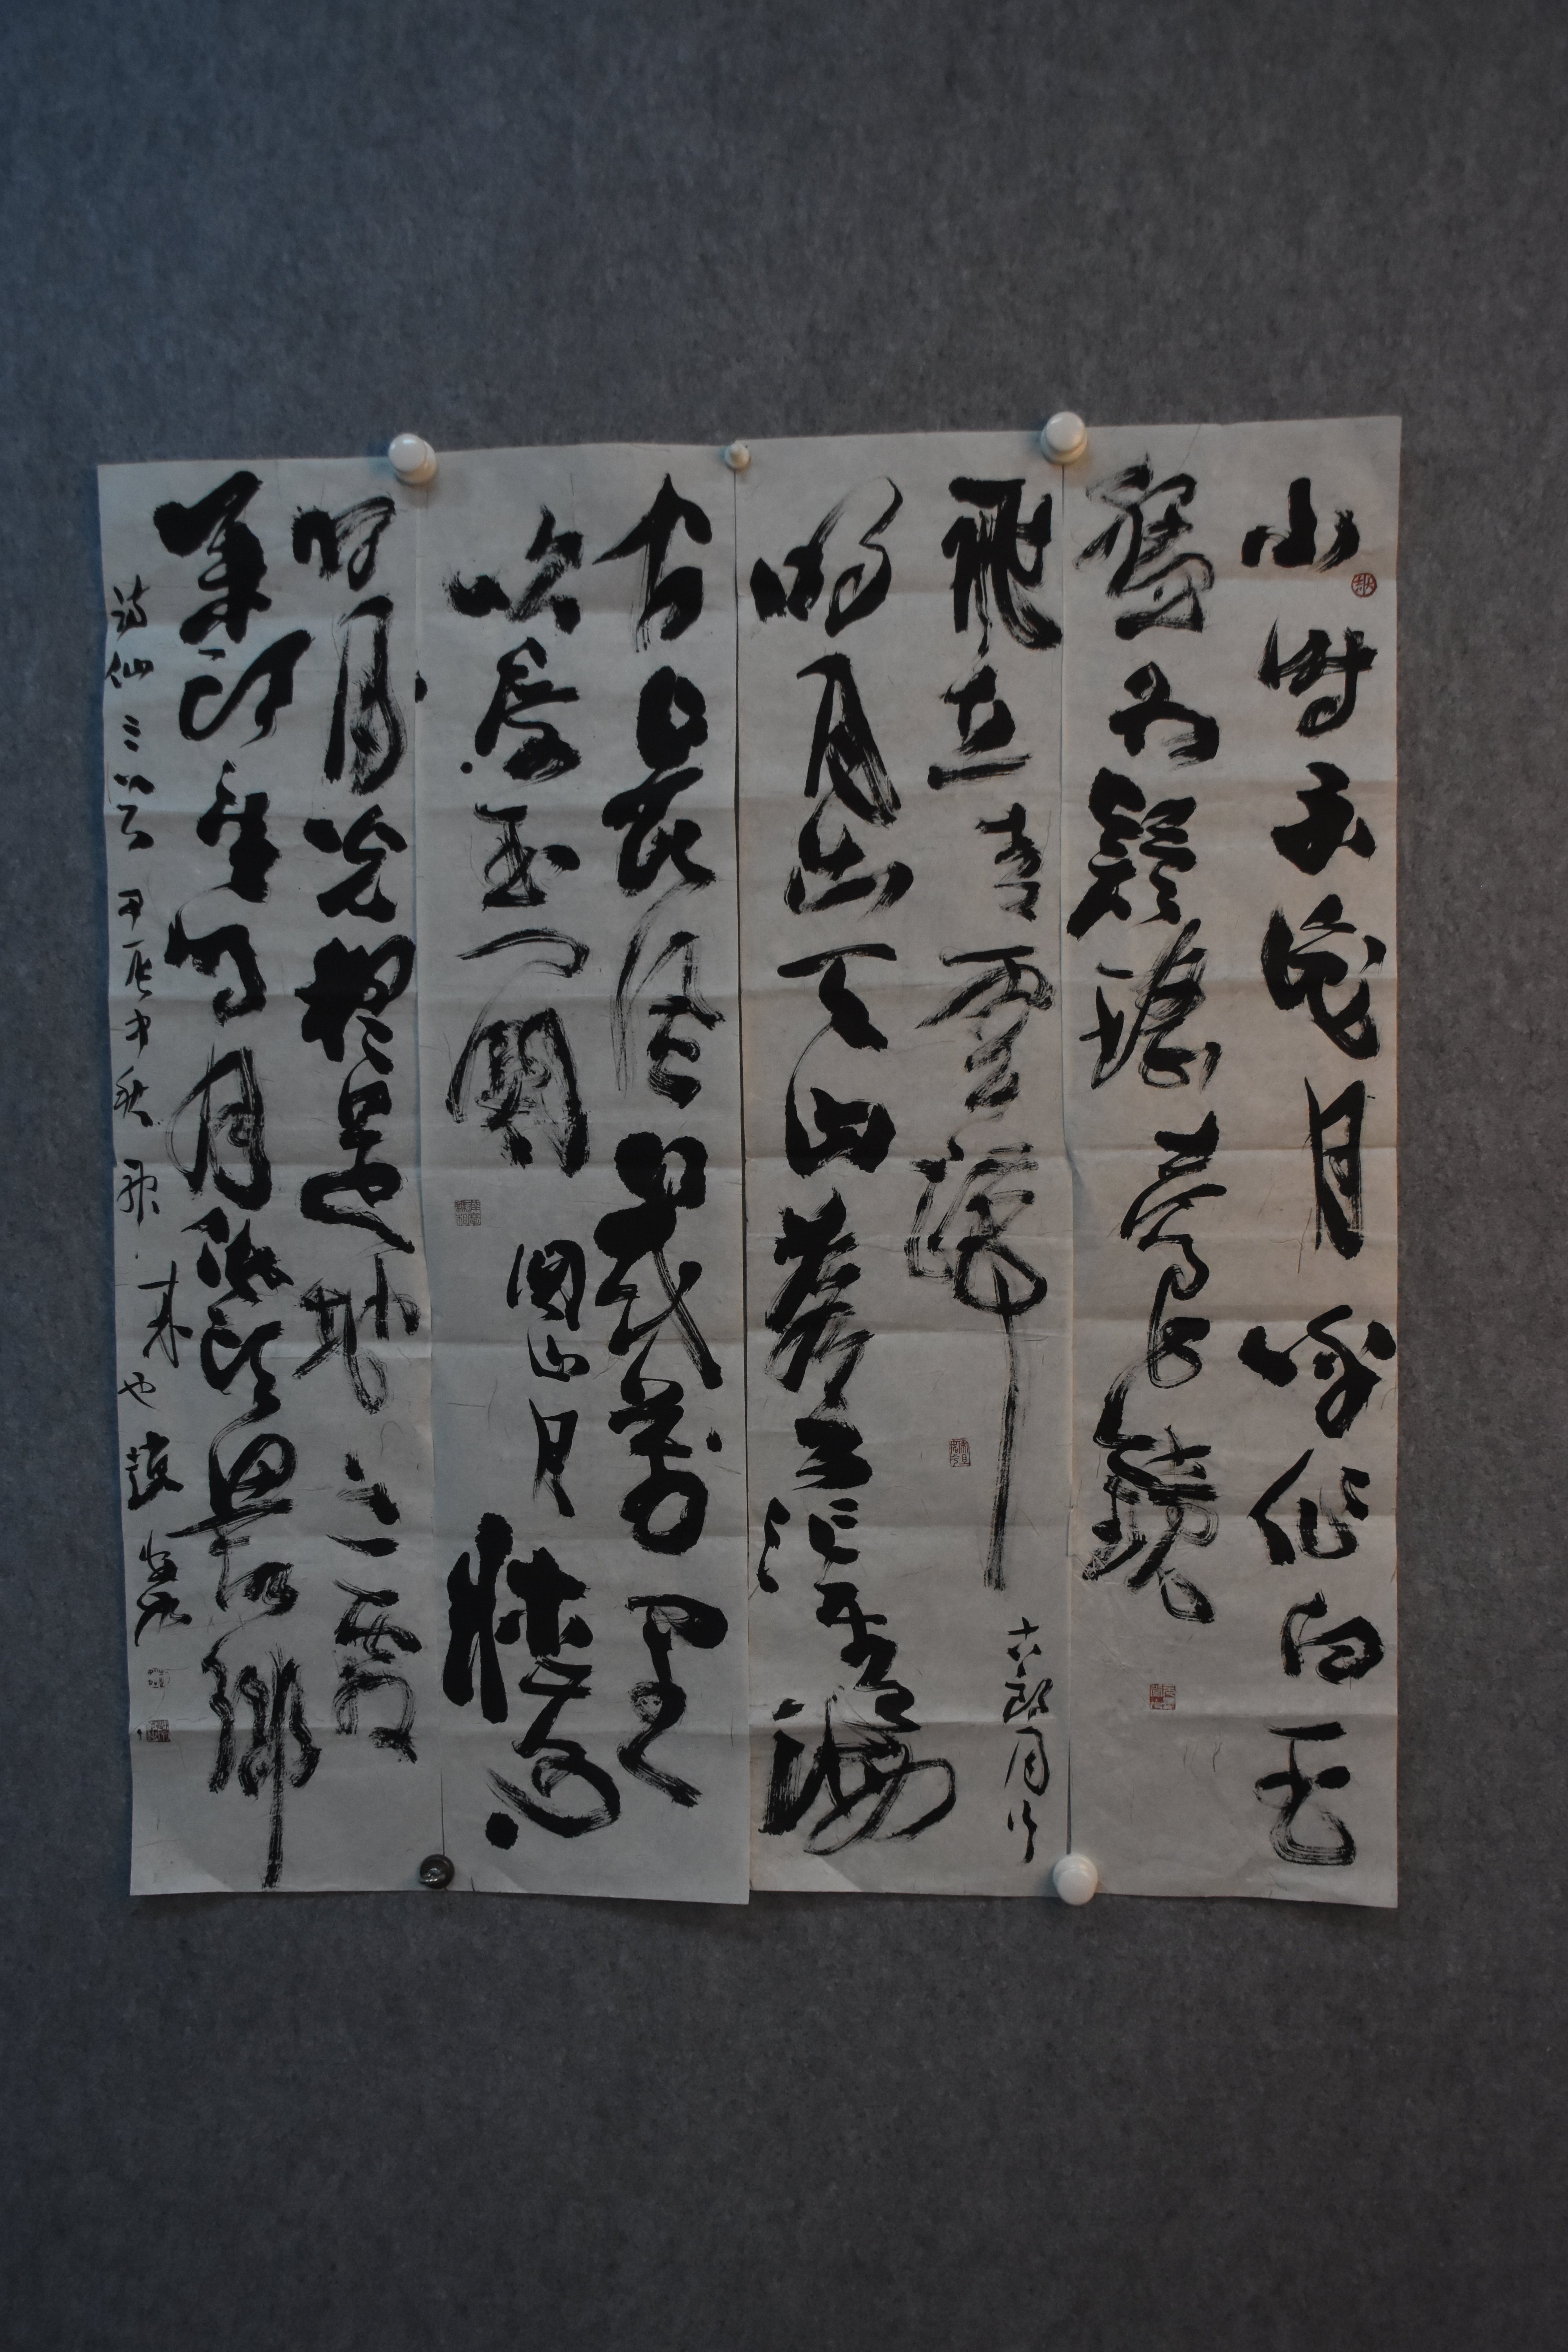 小時不識月呼作白玉
盤又疑瑤臺鏡
飛在青雲端
古朗月行
明月出天山蒼茫雲海
間長風幾萬里
吹度玉門關
關山月
牀前
明月光疑是地上霜
舉頭望明月低頭思故鄉
詩仙三首 甲辰中秋 來也